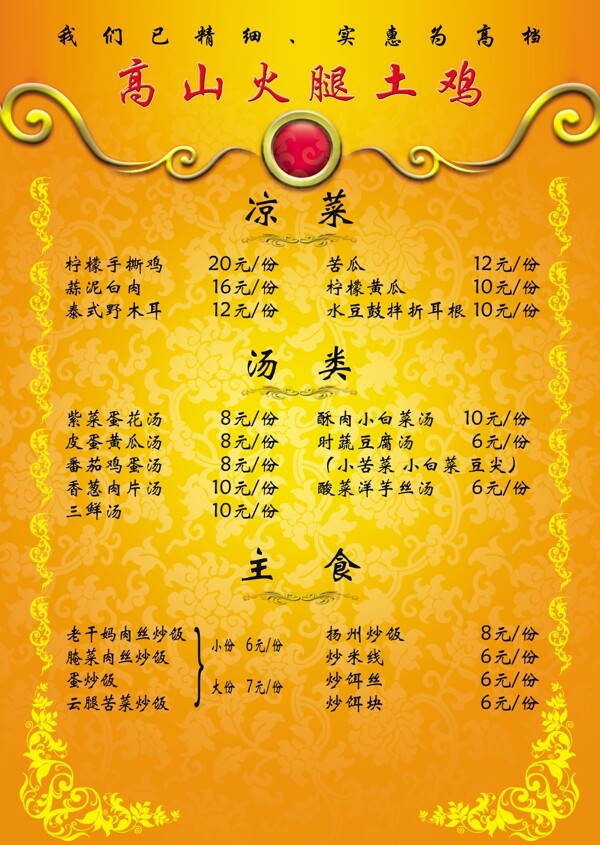 我们已精细、实惠为高档
高山火腿土鸡
凉菜
柠檬手撕鸡 20元/份
蒜泥白肉 16元/份
泰式野木耳 12元/份
苦瓜 12元/份
柠檬黄瓜 10元/份
水豆鼓拌折耳根 10元/份
汤类
紫菜蛋花汤 8元/份
皮蛋黄瓜汤 8元/份
番茄鸡蛋汤 8元/份
香葱肉片汤 10元/份
三鲜汤 10元/份
酥肉小白菜汤 10元/份
时蔬豆腐汤 6元/份
（小苦菜 小白菜 豆尖）
酸菜洋芋丝汤 6元/份
主食
老干妈肉丝炒饭
腌菜肉丝炒饭
蛋炒饭
云腿苦菜炒饭
小份 6元/份
大份 7元/份
扬州炒饭 8元/份
炒米线 6元/份
炒饵丝 6元/份
炒饵块 6元/份